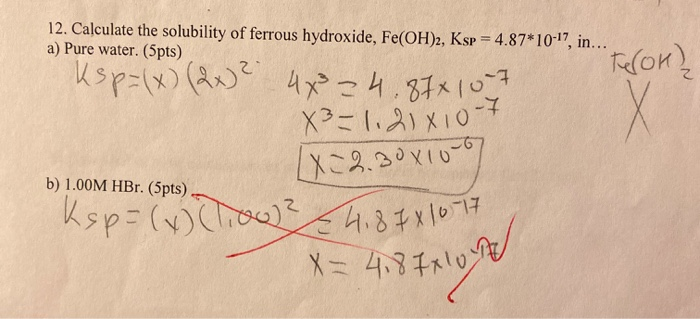 12. Calculate the solubility of ferrous hydroxide, Fe(OH)₂, Ksp = 4.87*10⁻¹⁷, in...
Fe(OH)₂
a) Pure water. (5pts)
X
Ksp=(x)(2x)² 4x³ = 4.87x10⁻⁷
X³ = 1.21x10⁻⁷
X=2.30x10⁻⁶
b) 1.00M HBr. (5pts)
Ksp=(x)(1.00)² = 4.87x10⁻¹⁷
X= 4.87x10⁻¹⁷